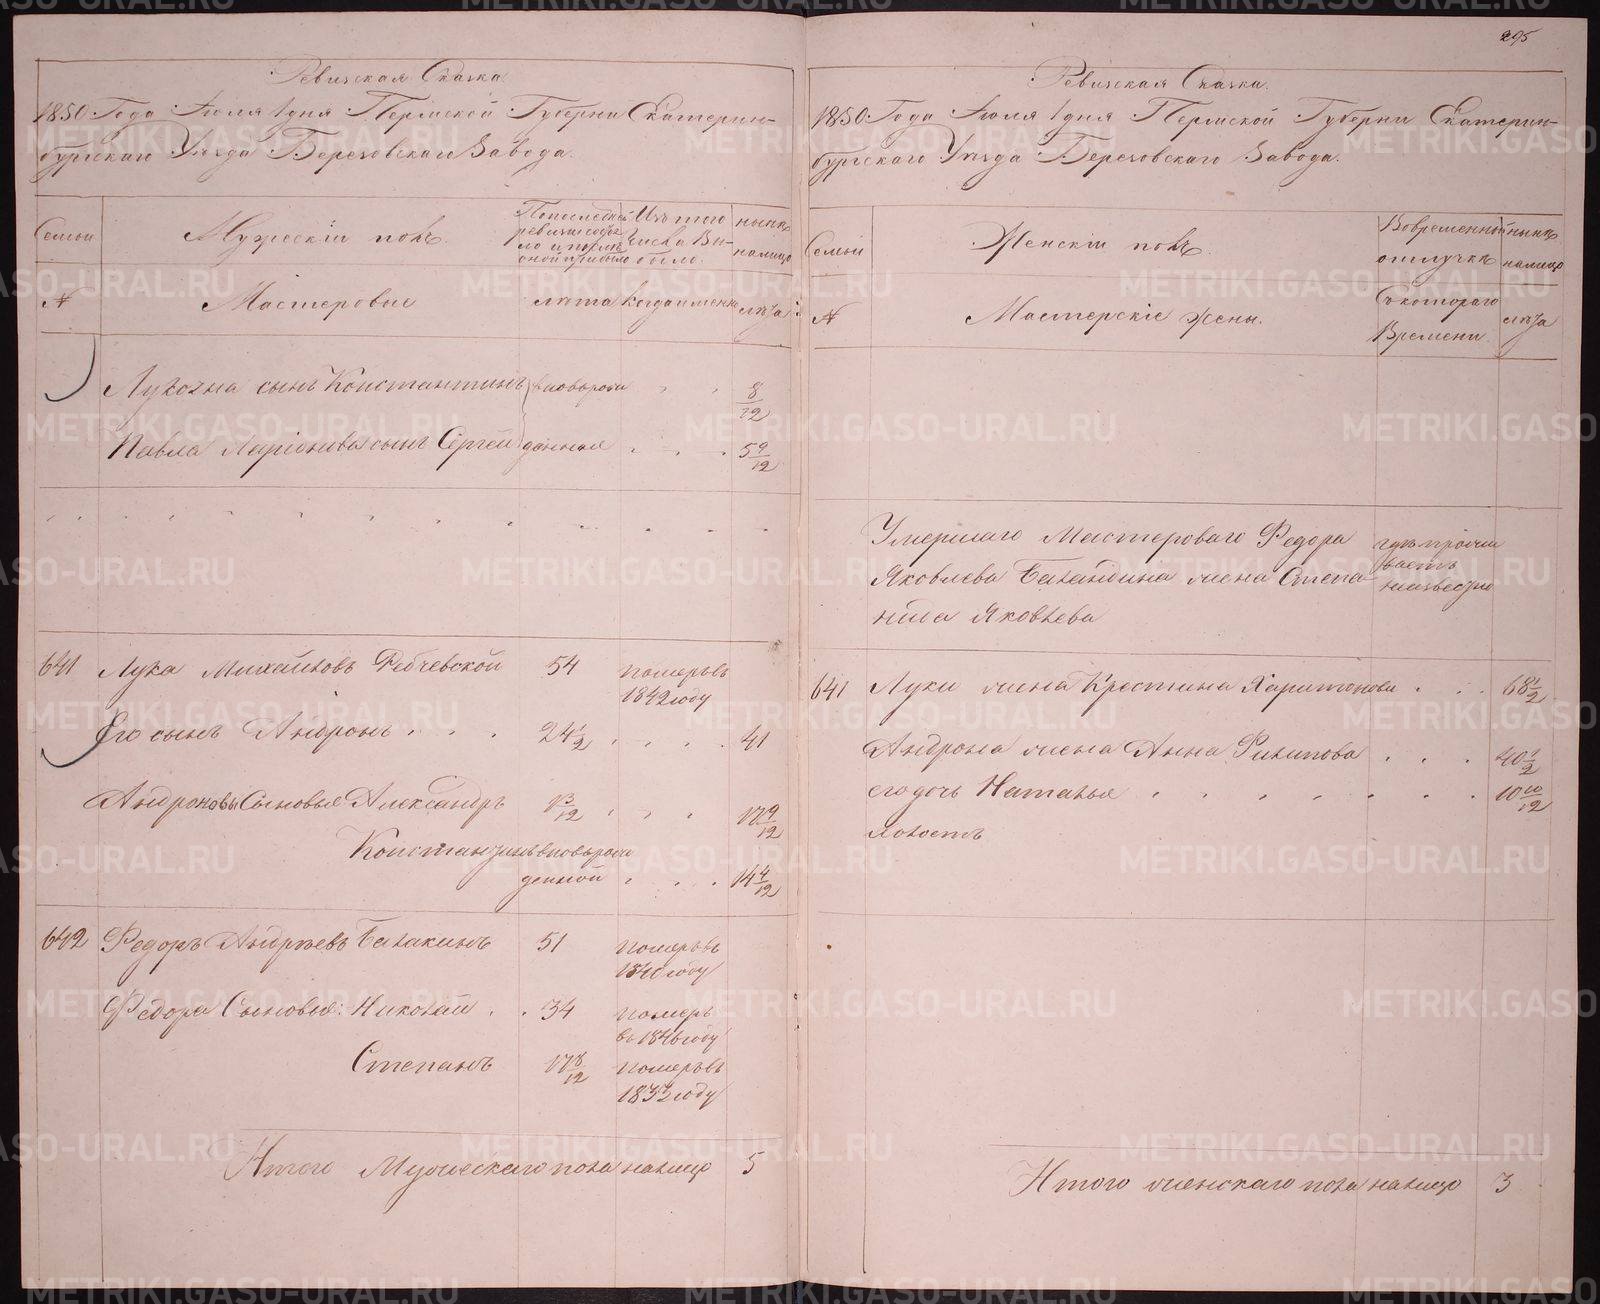 Ревизская Сказка
1850 Года Июля 1 дня Пермской Губернии Екатерин-
бургскаго Уезда Березовскаго Завода.
Семьи
Мужескій полъ.
По последней ревизіи состояло и после оной прибыло
Изъ того числа Выбыло.
ныне налицо
№
Мастеровые
лета
Когда именно
лета
сынъ Константинъ вновьрож
8/12
Павла Ларіонова сынъ Сергей денные
5 9/12
641 Лука Михайловъ 54 померъ въ
1842 году
Его сынъ Андронъ 24 1/2 41
Андроновы Сыновья Александръ 1 3/12 17 9/12
Константинъ вновьрож
денной 14 4/12
642 Федоръ Андреевъ Балакинъ 51 померъ въ
году
Федора Сыновья: Николай 34 померъ
въ 1846 году
Степанъ 17 8/12 померъ въ
году
Итого Мужескаго пола налицо 5
295
Ревизская Сказка.
1850 Года Июля 1 дня Пермской Губернии Екатерин-
бургскаго Уезда Березовскаго Завода.
Семьи
Женскій полъ.
Во временной отлучке
ныне налицо
№
Мастерскіе жены.
Съ котораго Времени
лета
Умершаго Мастероваго Федора
Яковлева жена Степа
нида Яковлева
где прожи
ваетъ
неизвестно
641 Луки жена Крестина Харитонова 68 1/2
Андрона жена Анна Филипова 40 1/2
его дочь Наталья 10 10/12
холостъ
Итого женскаго пола налицо 3
METRIKI.GASO-URAL.RU